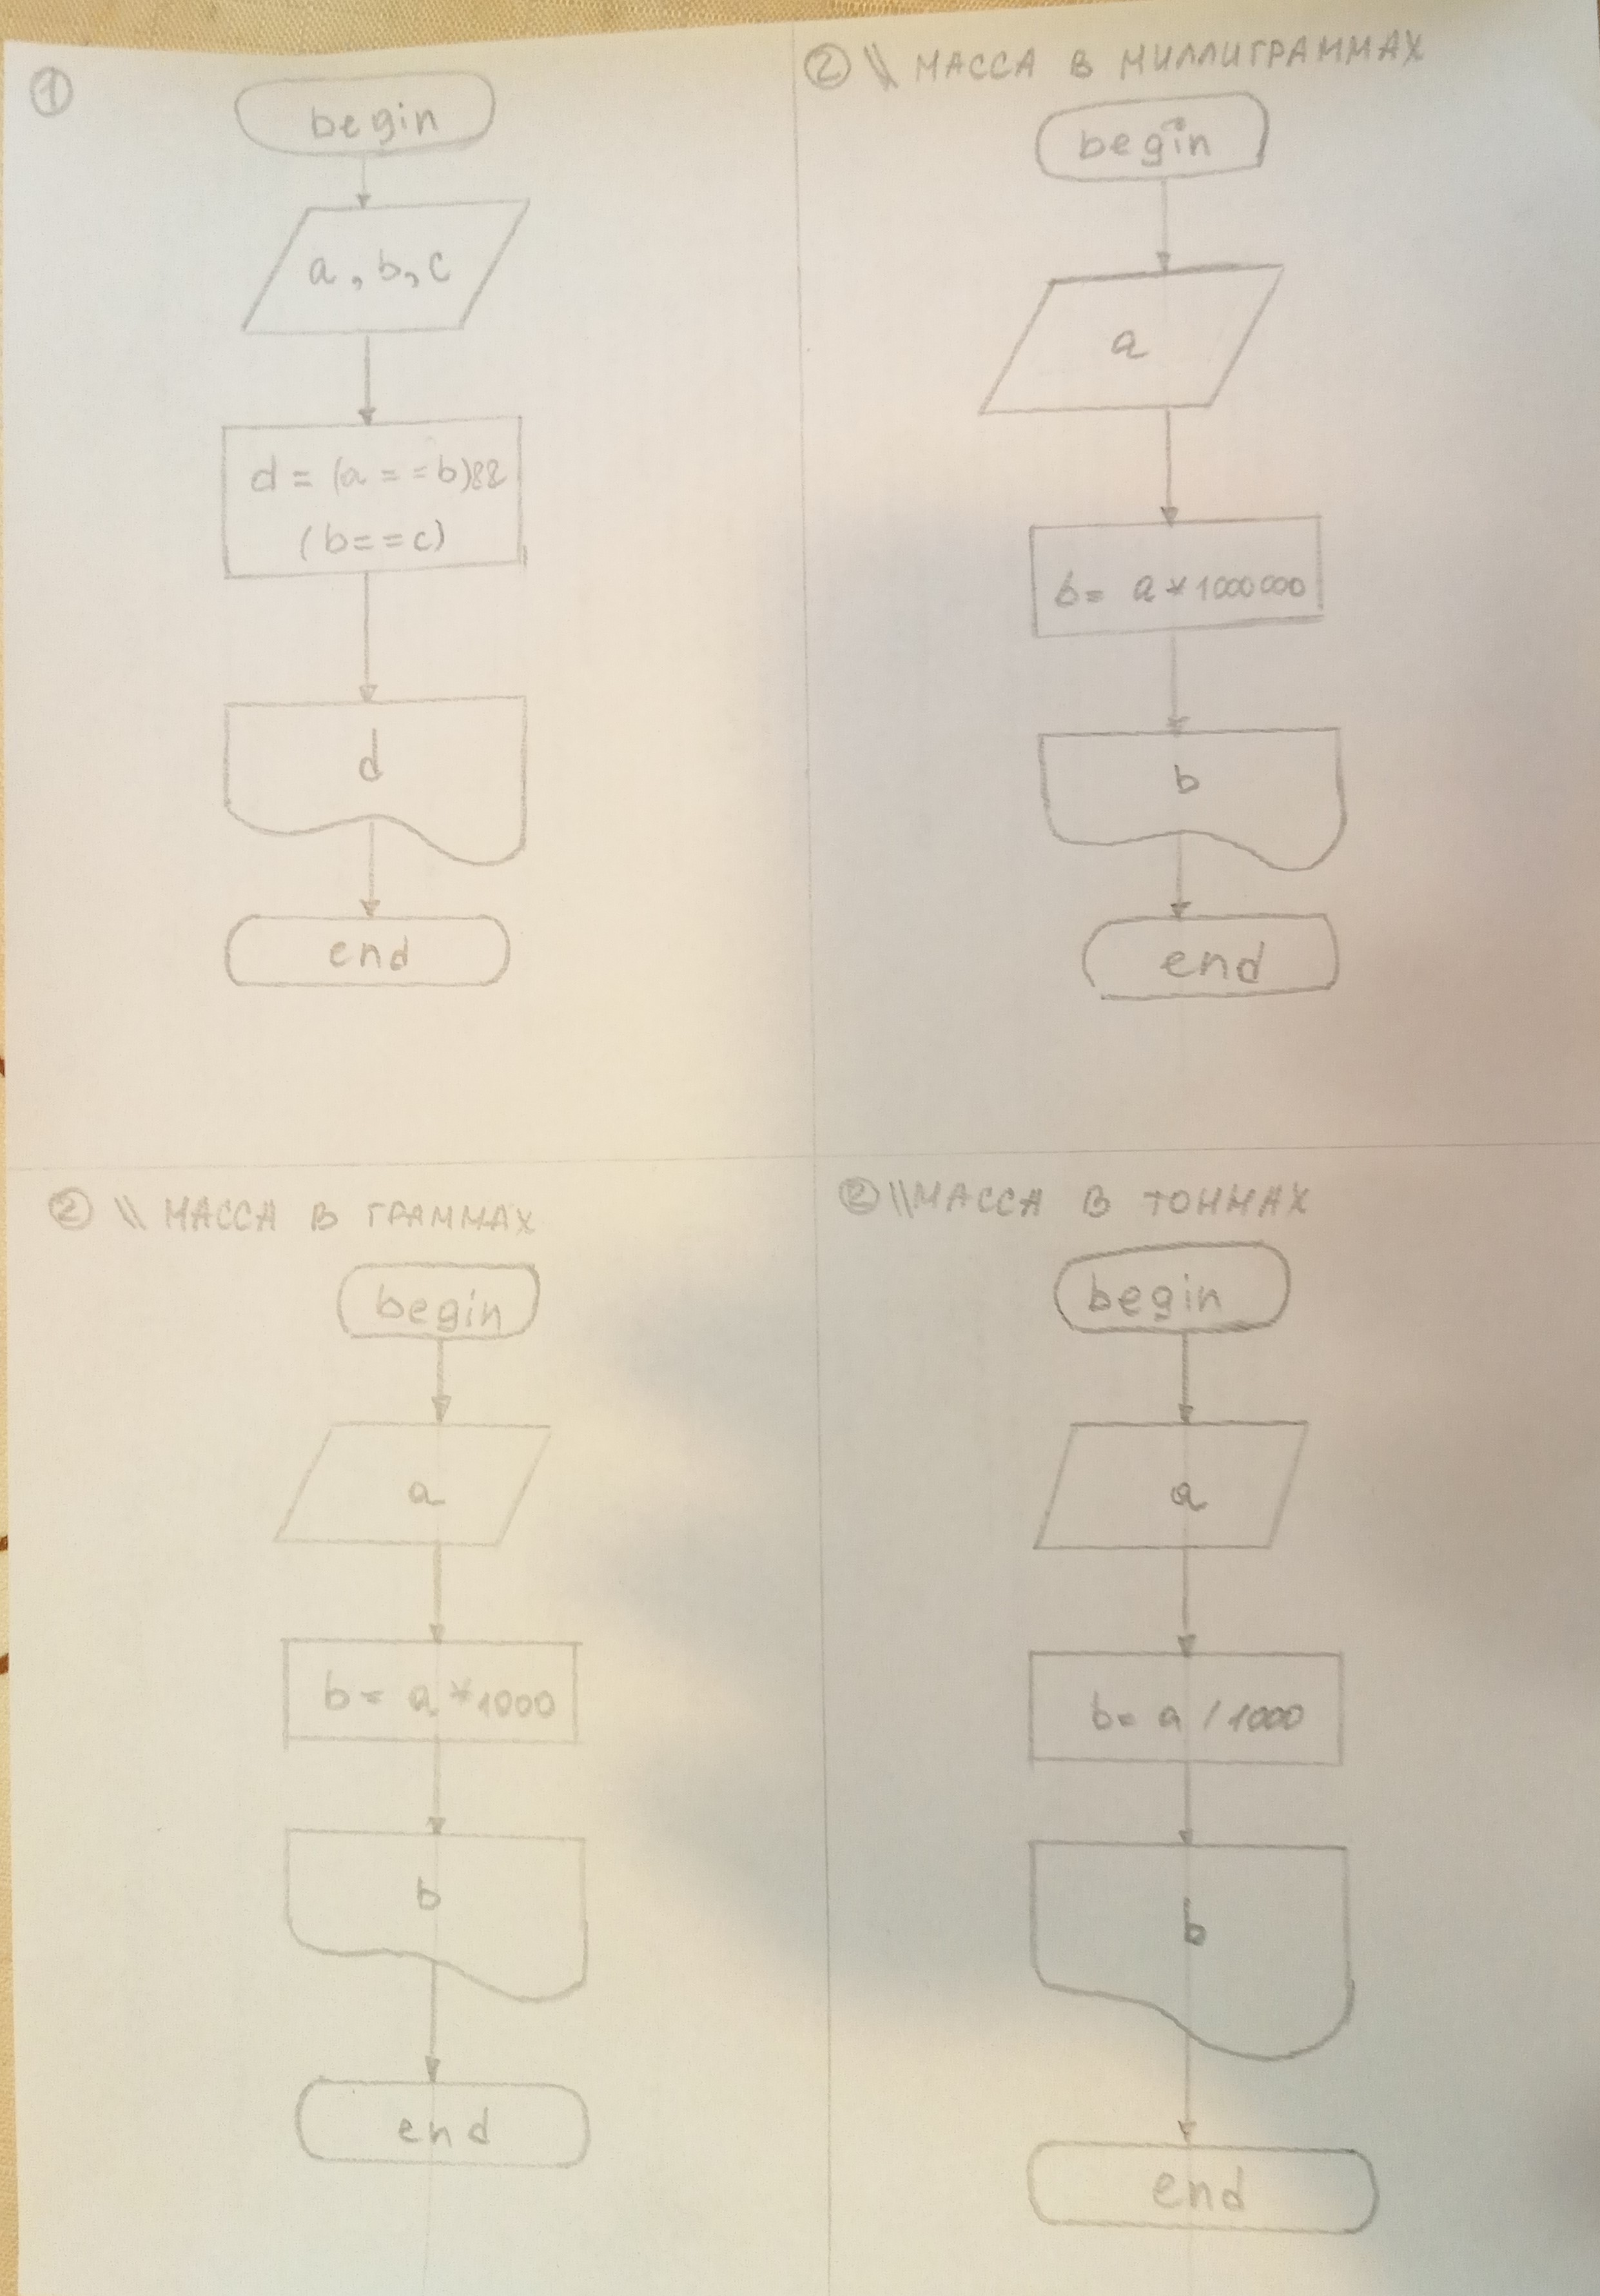 ①
begin
a, b, c
d = (a == b)&&
(b == c)
d
end
② \\ МАССА В МИЛЛИГРАММАХ
begin
a
b = a * 1000000
b
end
② \\ МАССА В ГРАММАХ
begin
a
b = a * 1000
b
end
② \\ МАССА В ТОННАХ
begin
a
b = a / 1000
b
end